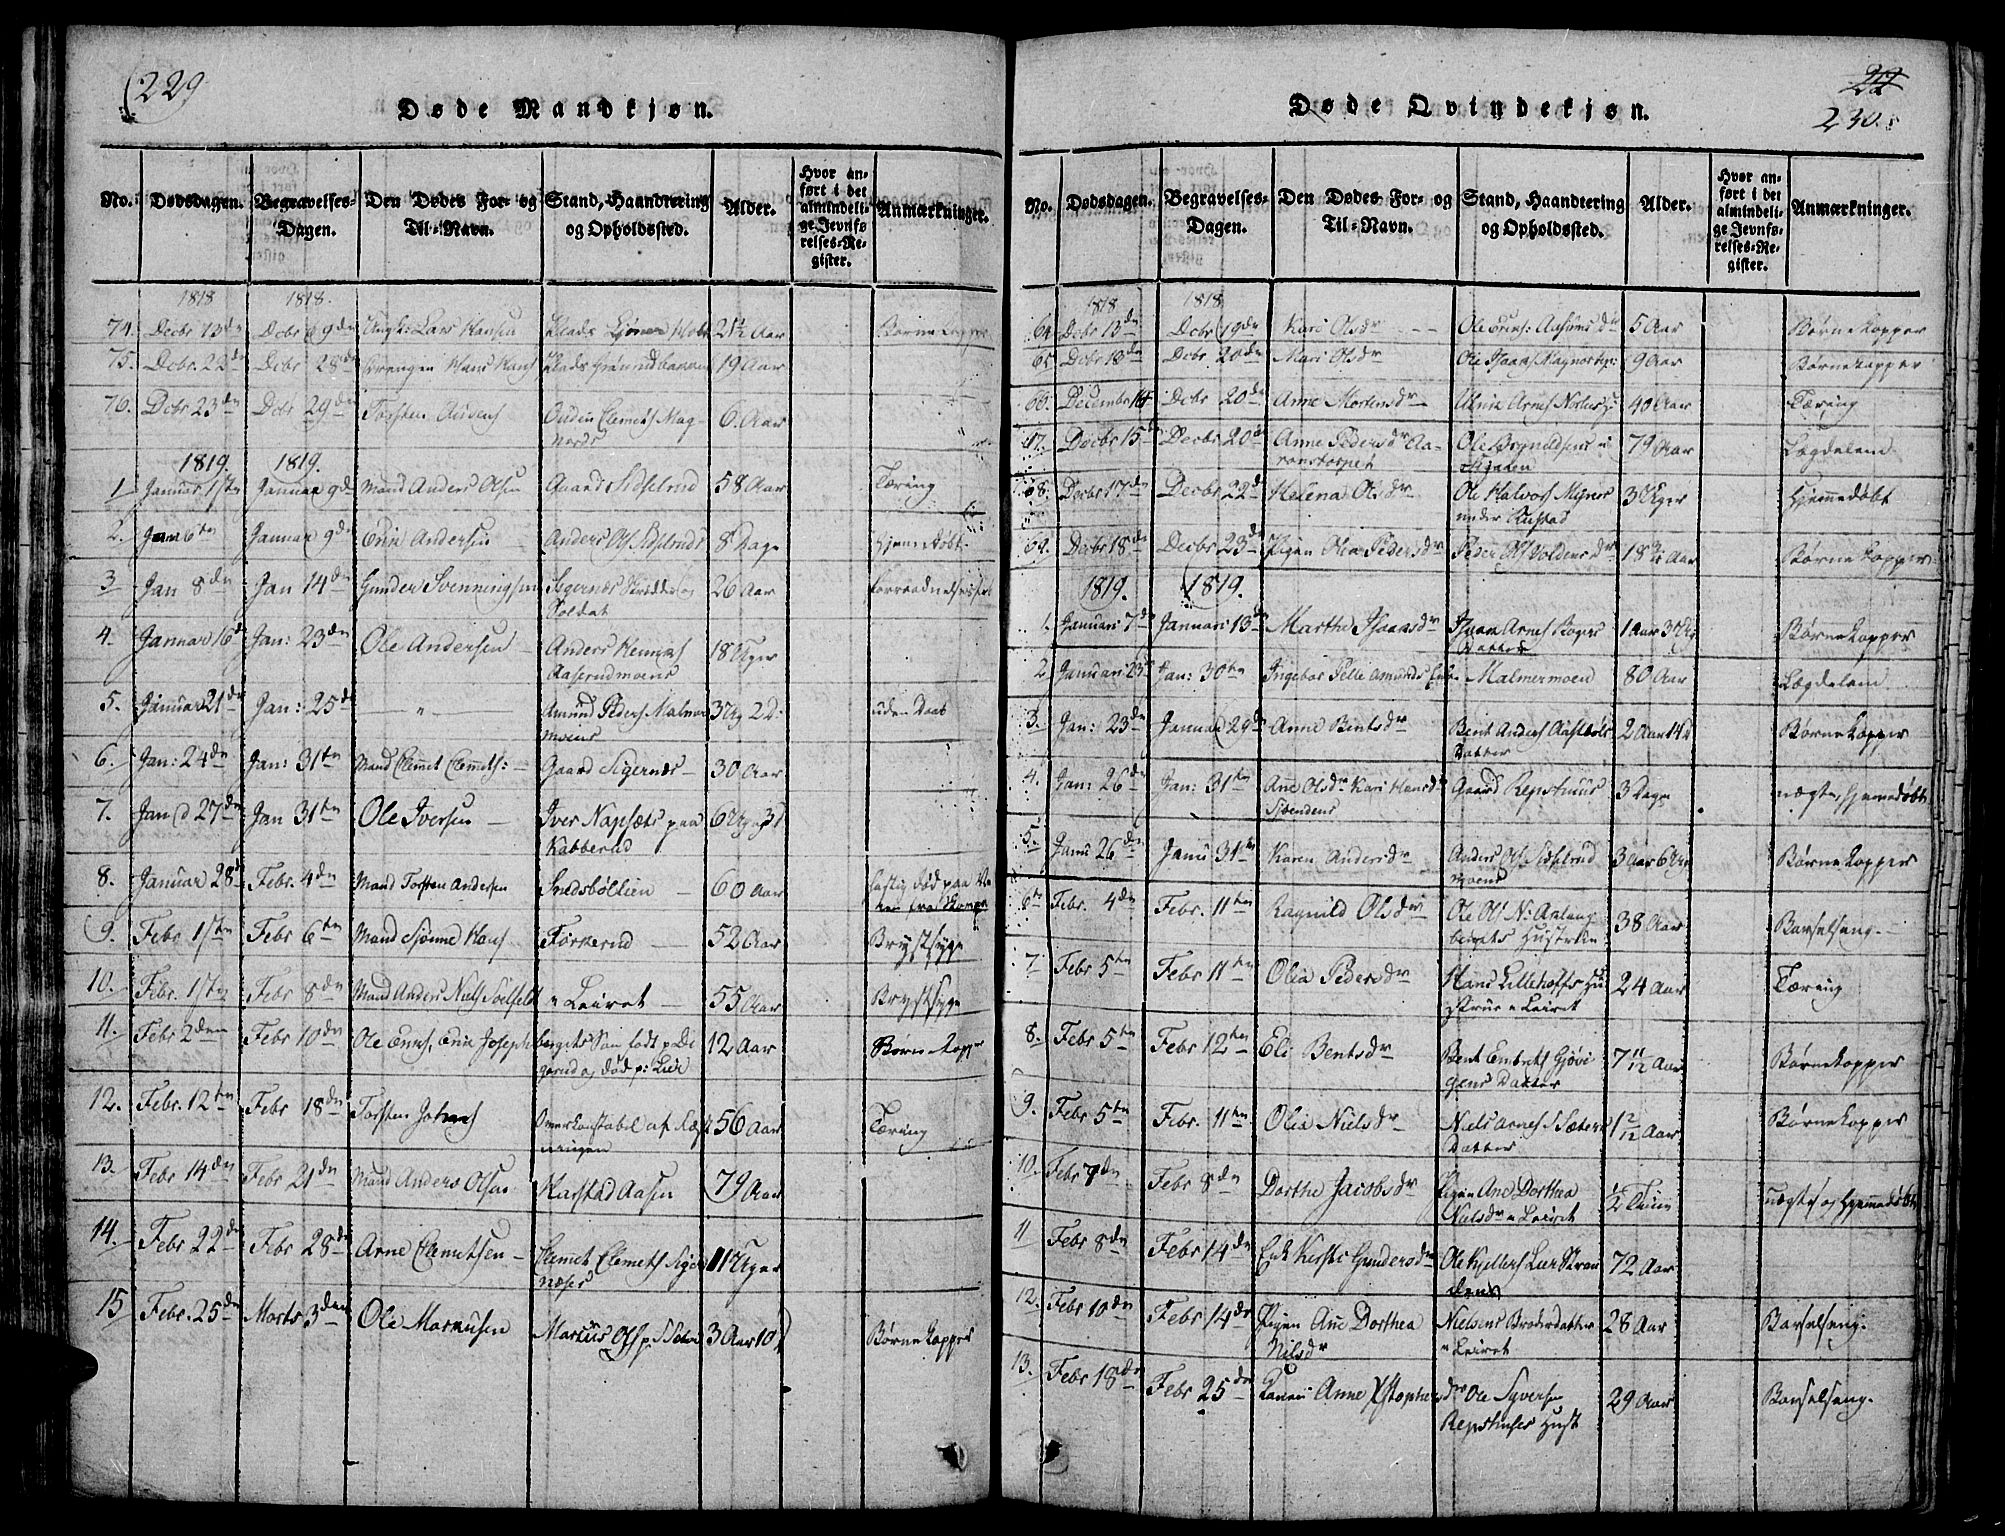 229
Døde Mandkjøn.
No. Dødsdagen. Begravelses-Dagen. Den Dødes For- og Til-Navn. Stand, Haandtering og Opholdssted. Alder. Hvor anført i det almindelige Jevnførelses-Register. Anmærkninger.
1818 1818.
74. Decbr 13de Dcbr 19de Ungk: Lars Hansen 21½ Aar Børnekopper
75. Dcbr. 22de Dcbr 28de Drengen Hans Hans 19 Aar
76. Dcbr 23de Dcbr 29de Torsten Audens Auden Clemets Mag-
nords 6. Aar
1819. 1819.
1 Januar 1ste Januar 9de Mand Anders Olsen Gaard Sidselrud 58 Aar Tæring
2. Jan 6te Januar 9de Eric Andersen Anders Ols Sidselruds 8 Dage Hjemmedøbt
3 Jan 8de Jan 14de Gunder Svenningsen Sigernæs Skredder og
Soldat 26 Aar Forraadnelsesfeb
4. Januar 16d Jan: 23de Ole Andersen Anders
Aaserudmoens 18 Uger
5. Januar 21de Jan: 25de — " — Amund Peders Malmer
moens 3 Ug 2 D: uden Daab
6. Jan: 24de Jan: 31te Mand Clemet Clemets: Gaard Sigernæs 30 Aar
7. Jan d 27de Jan 31te Ole Iversen Iver Napsæts paa
Kabberud 6 Uger 3 D
8. Januar 28d Febr. 4de Mand Torsten Andersen Snedsbøllien 60 Aar hastig død paa
9. Febr 1ste Febr 6te Mand Sjønne Hans Førkerud 52 Aar Brystsyge
10. Febr. 1ste Febr 8de Mand Anders Niels Solfeldt " Leiret 55 Aar Brystsyge
11. Febr 2den Febr 10de Ole Erics, Eric Joseph bergets Søn født p: Di
gerud og død p: Lier 12 Aar Børnekopper
12. Febr. 12te Febr 18de Torsten Johans Overkonstabel af
56 Aar Tæring
13. Febr 14de Febr 21de Mand Anders Olsen Harstad Aasen 79 Aar
14. Febr 22de Febr 28de Arne Clemetsen Clemet Clemets Siger
næses 11 Uger
15 Febr. 25de Marts 3den Ole Marcusen Marcus Ols p: Sæter 3 Aar 10 Børnekopper
22
230.
Døde Qvindekjøn.
No. Dødsdagen. Begravelses-Dagen. Den Dødes For- og Til-Navn. Stand, Haandtering og Opholdssted. Alder. Hvor anført i det almindelige Jevnførelses-Register. Anmærkninger.
1818 1818
64. Dcbr 13de Dcbr 19de Kari Olsdr Ole Erics: Aasums dr 5 Aar Børnekopper
65. Dcbr 13de Dcbr 20de Mari Olsdr Ole Isaas Magnorstp: 9 Aar Børnekopper
66. Decembr 14 Dcbr 20de Anne Mortensdr Arnes 40 Aar Tæring
67. Decbr 15de Decbr 20de Anne Pedersdr Aa-
ronstorpet Ole Brynildsens
79 Aar Lægdelem
68. Decbr 17de Decbr 22de Helena Olsdr Ole Halvors Migner
under Rustad 3 Uger Hjemmedøbt
69. Decbr 18de Decbr 23de Pigen Olea Pedersdr Peder Ols Voldens dr 18¾ Aar Børnekopper
1819. 1819.
1. Januari 7de Januari 13de Marthe Isaasdr Isaac Arnes Boges
Datter 1 Aar 3 Ug Børnekopper
2 Januari 23de Jan: 30te Ingebor Pelle Amunds Enke Malmermoen 80 Aar Lægdelem
3. Jan: 23de Januar 29de Anne Bentsdr Bent Anders Aastebøls
Datter 2 Aar 14 d Børnekopper
4. Jan: 26de Jan: 31te Ane Olsdr Kari Hansdr
Sjøendens Gaard Repshuus 3 Dage uægte, Hjemmedøbt
5. Janu 26de Janu 31te Karen Andersdr Anders Ols Sidselrud
moens 3 Aar 6 Ug Børnekopper
6te Febr. 4de Febr. 11te Ragnild Olsdr Ole Ols N: Aalang
bergets Hustrue 38 Aar Barselseng.
7 Febr 5te Febr 11te Olia Pedersdr Hans Lillehoffs Hu
strue " Leiret 24 Aar Tæring
8. Febr 5te Febr 12te Eli Bentsdr Bent Embrets Gjøvi
gens Datter 7 11/12 Aar Børnekopper
9. Febr 5te Febr. 11te Olia Nielsdr Niels Arnes Sæters
Datter 1 2/12 Aar Børnekopper
10. Febr 7de Febr 8de Dorthe Jacobsdr Pigen Ane Dorthea
Nielsdr " Leiret ½ Time uægte og Hjemmedøbt
11 Febr 8de Febr 14de Enk Kirsti Gundersdr Ole Kjellers Lier Stran
dens 72 Aar
12. Febr 10de Febr 14de Pigen Ane Dorthea
Nilsdr Nielsens Broderdatter
" Leiret 28 Aar Barselseng.
13. Febr 18de Febr 25de Konen Anne Xstophers dr Ole Syversen
Repshuses Hust 29 Aar Barselseng.